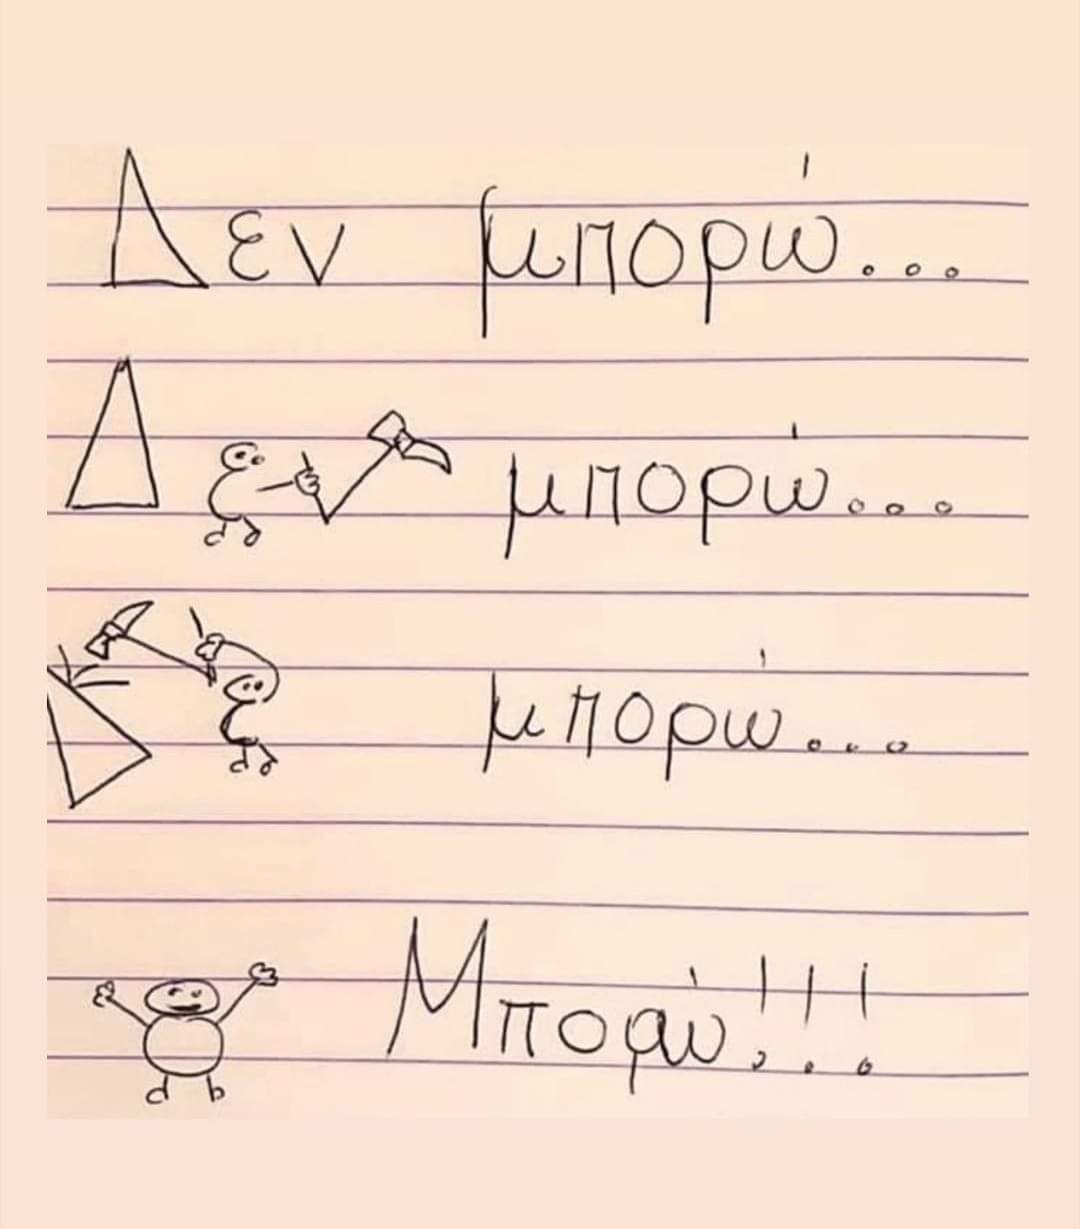 Δεν μπορώ...
Δεν μπορώ...
ε μπορώ...
Μπορώ!!!